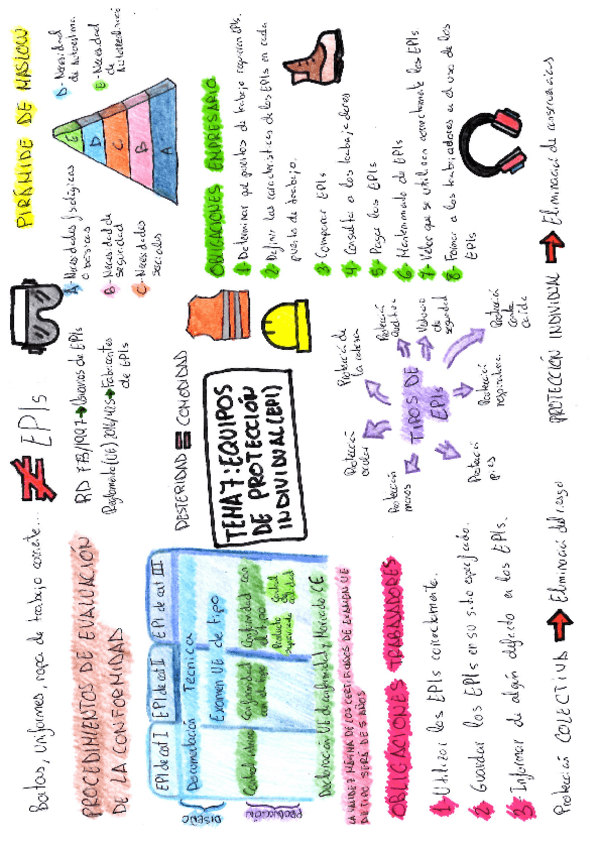 Batas, uniformes, ropa de trabajo corriente... ≠ EPIs
PIRÁMIDE DE MASLOW
RD 773/1997 → Usuarios de EPIs
Reglamento (UE) 2016/425 → Fabricantes
de EPIs
A- Necesidades fisiológicas
o básicas
B- Necesidad de
seguridad
C- Necesidades
sociales
D- Necesidad
de Autoestima
E- Necesidad de
E
D
C
B
A
PROCEDIMIENTOS DE EVALUACIÓN
DE LA CONFORMIDAD
EPI de cat I
EPI de cat II
EPI de cat III
DISEÑO
Documentación Técnica
Examen UE de tipo
PRODUCCIÓN
Control interno
Conformidad
con el tipo
Conformidad con
el tipo
Producto
supervisado
Control
calidad
Declaración UE de conformidad y Marcado CE
LA VALIDEZ MÁXIMA DE LOS CERTIFICADOS DE EXAMEN UE
DE TIPO SERÁ DE 5 AÑOS
DESTERIDAD = COMODIDAD
TEMA 7: EQUIPOS
DE PROTECCIÓN
INDIVIDUAL (EPI)
OBLIGACIONES EMPRESARIO
1- Determinar qué puestos de trabajo requieren EPIs.
2- Definir las características de los EPIs en cada
puesto de trabajo.
3- Comparar EPIs
4- Consulta a los trabajadores
5- Pagar los EPIs
6- Mantenimiento de EPIs
7- Velar que se utilicen correctamente los EPIs
8- Formar a los trabajadores en el uso de los
EPIs
OBLIGACIONES TRABAJADORES
1- Utilizar los EPIs correctamente.
2- Guardar los EPIs en su sitio especificado.
3- Informar de algún defecto en los EPIs.
TIPOS DE
EPIs
Protección
ocular
Protección de
la cabeza
Protección
auditiva
Vestuario
de seguridad
Protección
contra
caída
Protección
respiratoria
Protección
pies
Protección
manos
Protección COLECTIVA → Eliminación del riesgo
PROTECCIÓN INDIVIDUAL → Eliminación de consecuencias